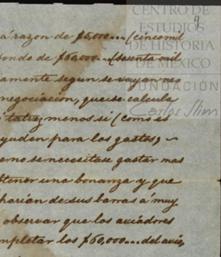 CENTRO DE
ESTUDIOS
DE HISTORIA
DE MÉXICO
FUNDACIÓN
Carlos Slim
á razon de $5000... (cinco mil
ondo de $60,000... (sesenta mil
amente segun se vayan nes
negociacion, que se calcula
menos si (como se
ayuden para los gastos,
emo se necesitase gastar mas
btener una bonanza y que
harian de sus barras a muy
observar que los aviadores
mpletar los $60,000... del avio,